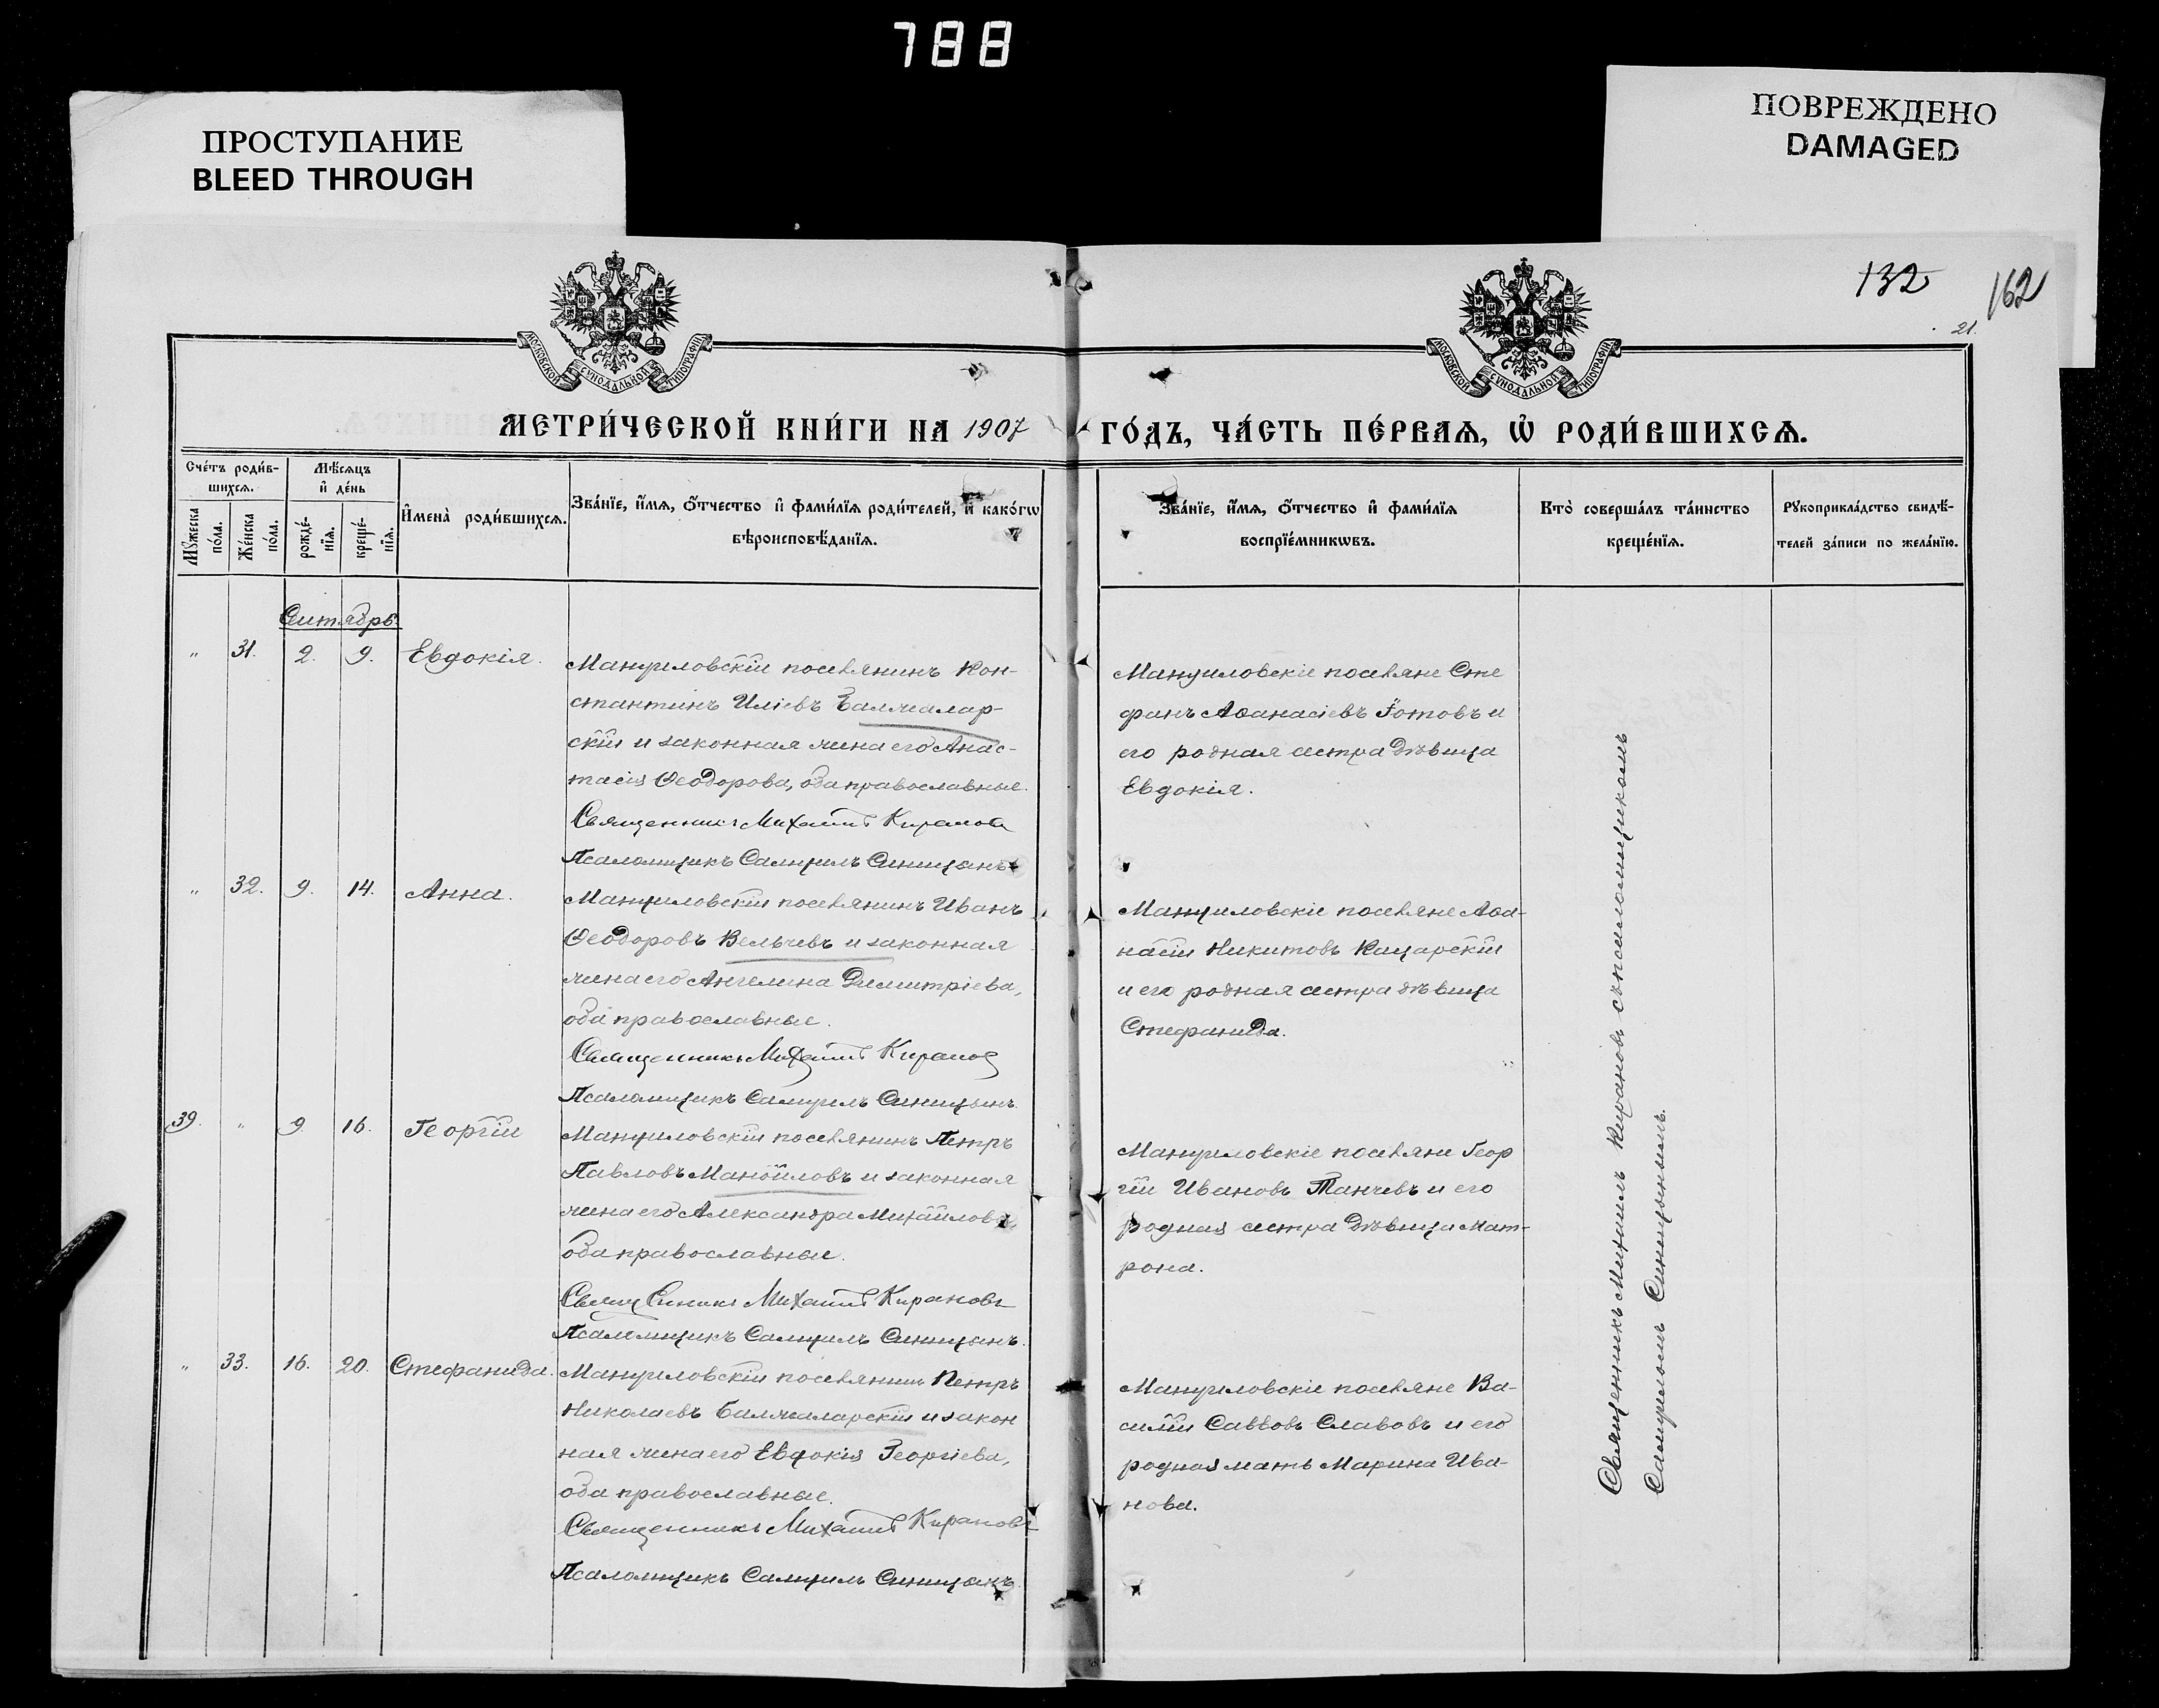 788
ПРОСТУПАНИЕ
BLEED THROUGH
ПОВРЕЖДЕНО
DAMAGED
132
162
21.
МОСКОВСКОЙ СУНОДАЛЬНОЙ ТИПОГРАФІИ
МОСКОВСКОЙ СУНОДАЛЬНОЙ ТИПОГРАФІИ
МЕТРИ́ЧЕСКОЙ КНИ́ГИ НА 1907 ГО́ДЪ, ЧА́СТЬ ПЕ́РВАѦ, Ѡ҆ РОДИ́ВШИХСѦ.
Сче́тъ роди́в-
шихсѧ.
Мѣ́сѧцъ
и҆ де́нь
Мꙋ́жеска
по́ла.
Же́нска
по́ла.
рожде́-
нїѧ.
креще́-
нїѧ.
И҆мена̀ роди́вшихсѧ.
Зва́нїе, и҆́мѧ, ѻ҆́тчество и҆ фами́лїѧ роди́телей, и҆ како́гѡ
вѣроисповѣ́данїѧ.
Зва́нїе, и҆́мѧ, ѻ҆́тчество и҆ фами́лїѧ
воспрїе́мникѡвъ.
Кто̀ соверша́лъ та́инство
креще́нїѧ.
Рꙋкоприкла́дство свидѣ́-
телей за́писи по жела́нїю.
Сентябрь.
" 31. 2. 9. Евдокія.
Мануиловскій поселянинъ Кон-
стантинъ Иліевъ Балжалар-
скій и законная жена его Анас-
тасія Ѳеодорова, оба православные.
Священникъ Михаилъ Киранов
Псаломщикъ Самуилъ Синицынъ
Мануиловскіе поселяне Сте
фанъ Аѳанасіевъ Іотовъ и
его родная сестра дѣвица
Евдокія.
" 32. 9. 14. Анна.
Мануиловскій поселянинъ Иванъ
Ѳеодоровъ Вельчевъ и законная
жена его Ангелина Димитріева,
оба православные.
Священникъ Михаилъ Киранов
Псаломщикъ Самуилъ Синицынъ.
Мануиловскіе поселяне Аѳа-
насій Никитовъ Кацарскій
и его родная сестра дѣвица
Стефанида.
39. " 9 16. Георгій
Мануиловскій поселянинъ Петръ
Павловъ Манойловъ и законная
жена его Александра Михайлова,
оба православные.
Священникъ Михаилъ Кирановъ
Псаломщикъ Самуилъ Синицынъ.
Мануиловскіе поселяне Геор
гій Ивановъ Танчевъ и его
родная сестра дѣвица Мат-
рона.
" 33. 16. 20. Стефанида.
Мануиловскій поселянинъ Петръ
Николаевъ Балжаларскій и закон
ная жена его Евдокія Георгіева,
оба православные.
Священникъ Михаилъ Кирановъ
Псаломщикъ Самуилъ Синицынъ.
Мануиловскіе поселяне Ва-
силій Саввовъ Славовъ и его
родная мать Марина Ива-
нова.
Священникъ Михаилъ Кирановъ съ псаломщикомъ
Самуиломъ Синицынымъ.